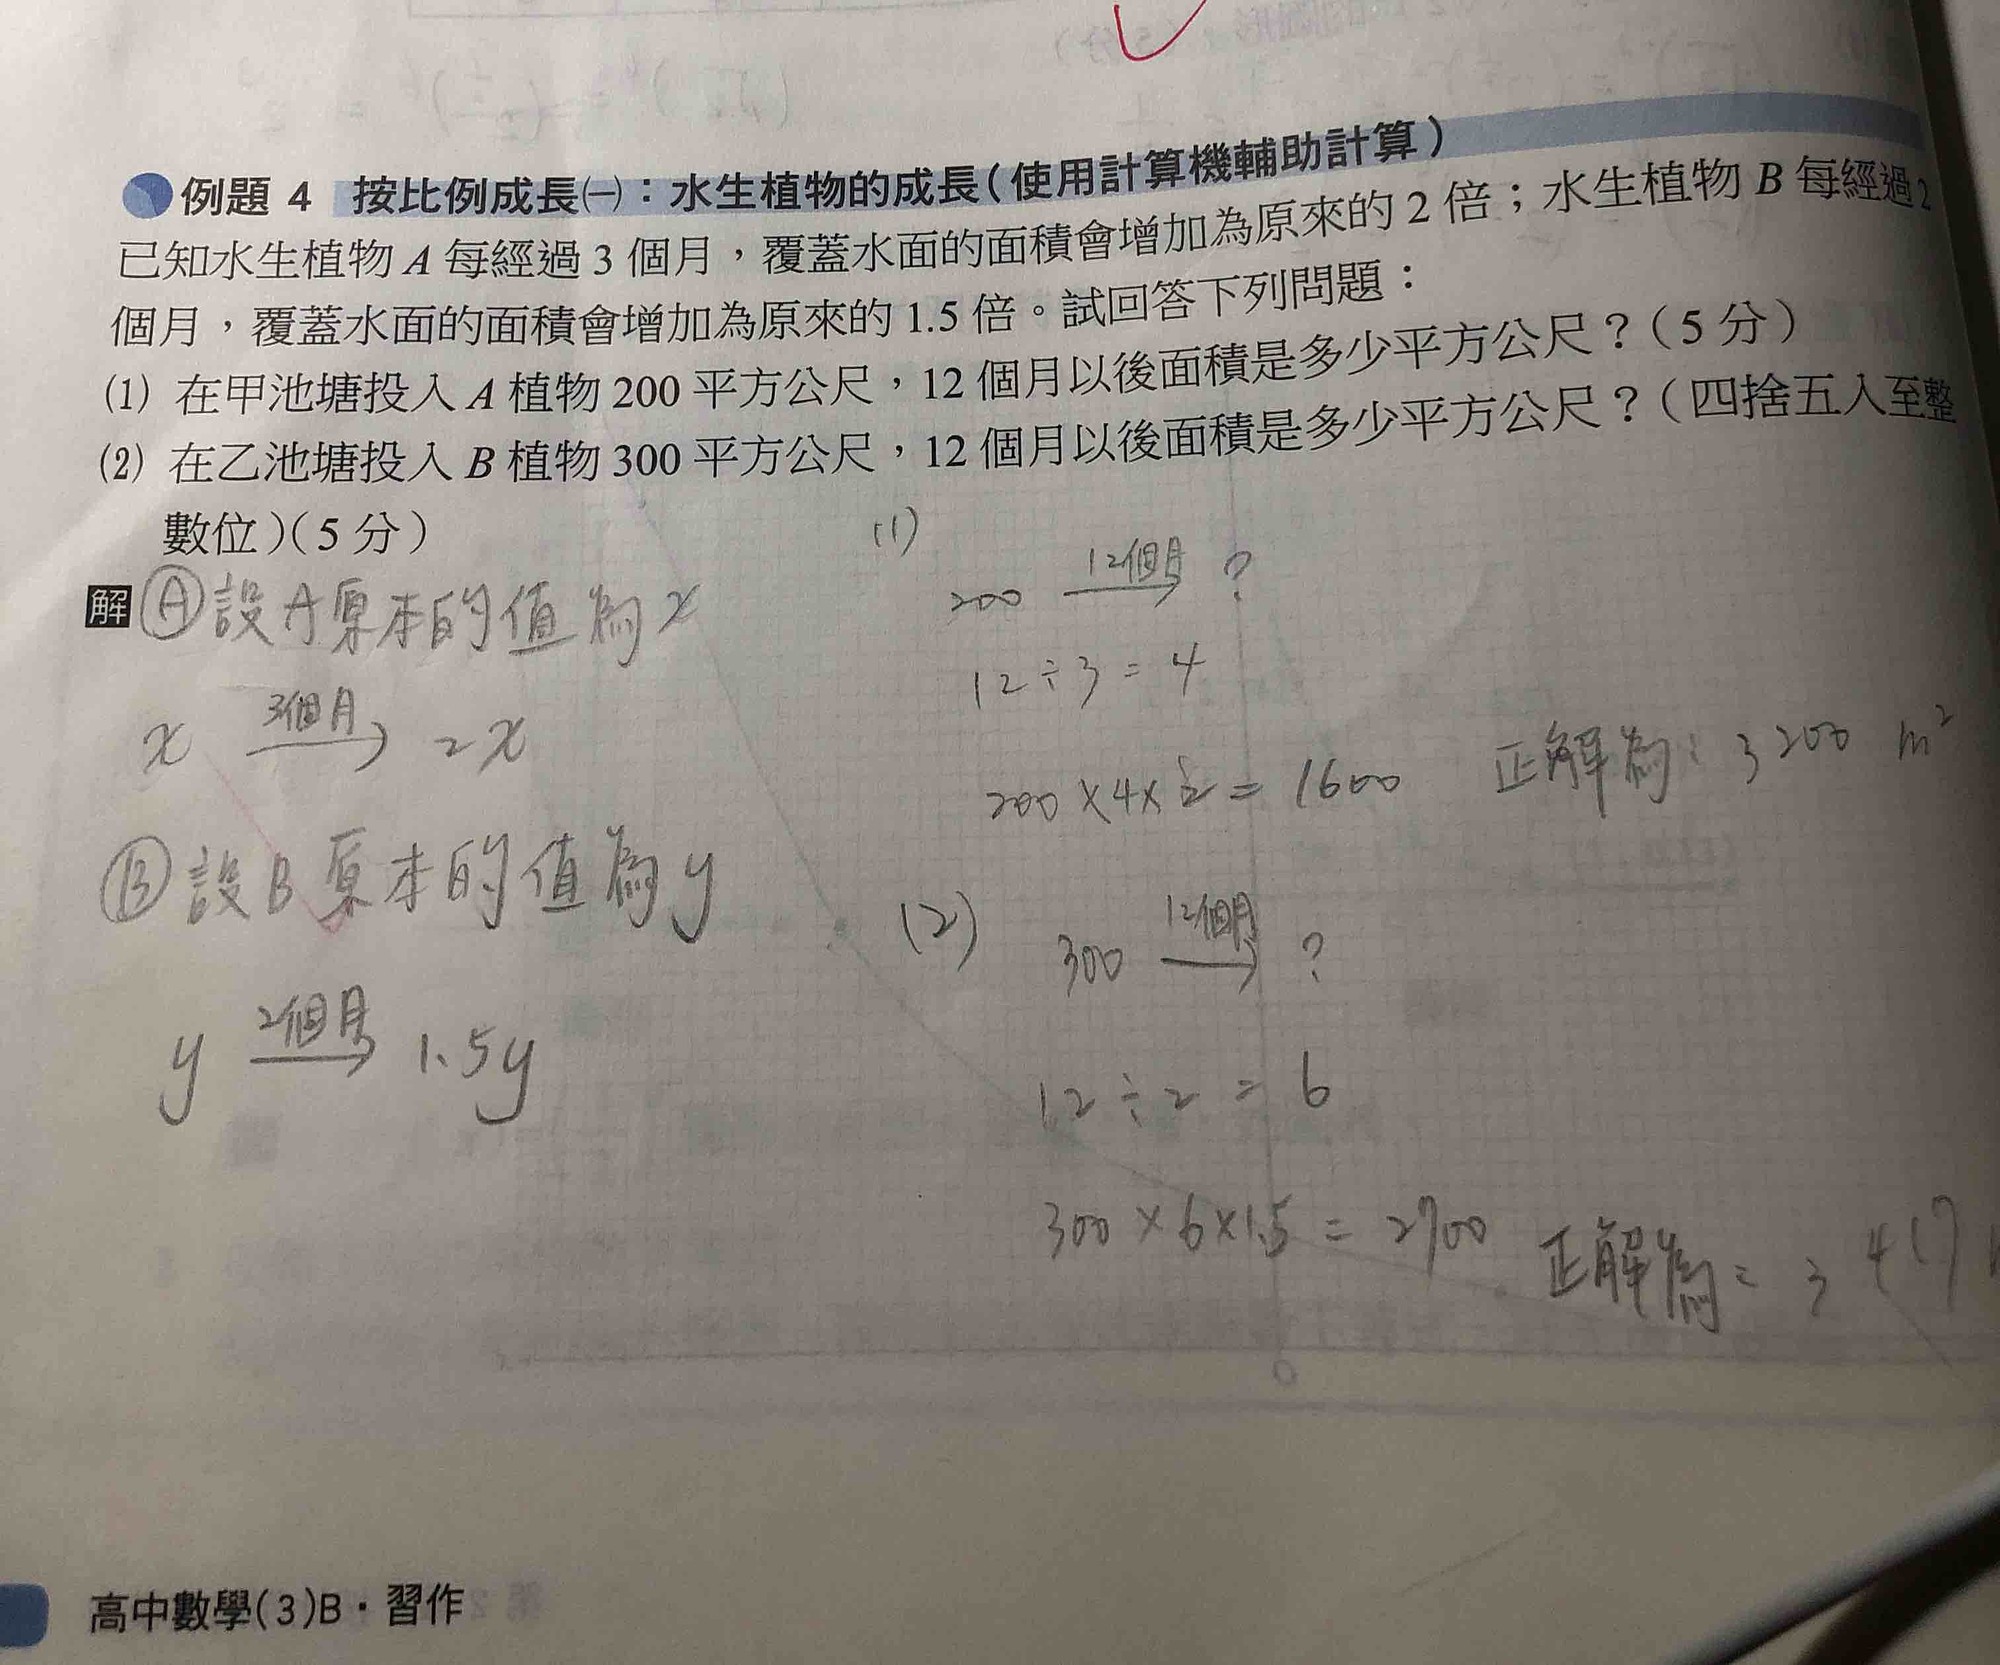 例題 4 按比例成長㈠：水生植物的成長(使用計算機輔助計算)
已知水生植物 A 每經過 3 個月，覆蓋水面的面積會增加為原來的 2 倍；水生植物 B 每經過 2
個月，覆蓋水面的面積會增加為原來的 1.5 倍。試回答下列問題：
(1) 在甲池塘投入 A 植物 200 平方公尺，12 個月以後面積是多少平方公尺？(5 分)
(2) 在乙池塘投入 B 植物 300 平方公尺，12 個月以後面積是多少平方公尺？(四捨五入至整
數位)(5 分)
解 Ⓐ設A原本的值為x
x 3個月→ 2x
Ⓑ設B原本的值為y
y 2個月→ 1.5y
(1)
200 12個月→ ?
12÷3=4
200×4×2=1600 正解為: 3200 m²
(2)
300 12個月→ ?
12÷2=6
300×6×1.5=2700 正解為= 3417
高中數學(3)B・習作